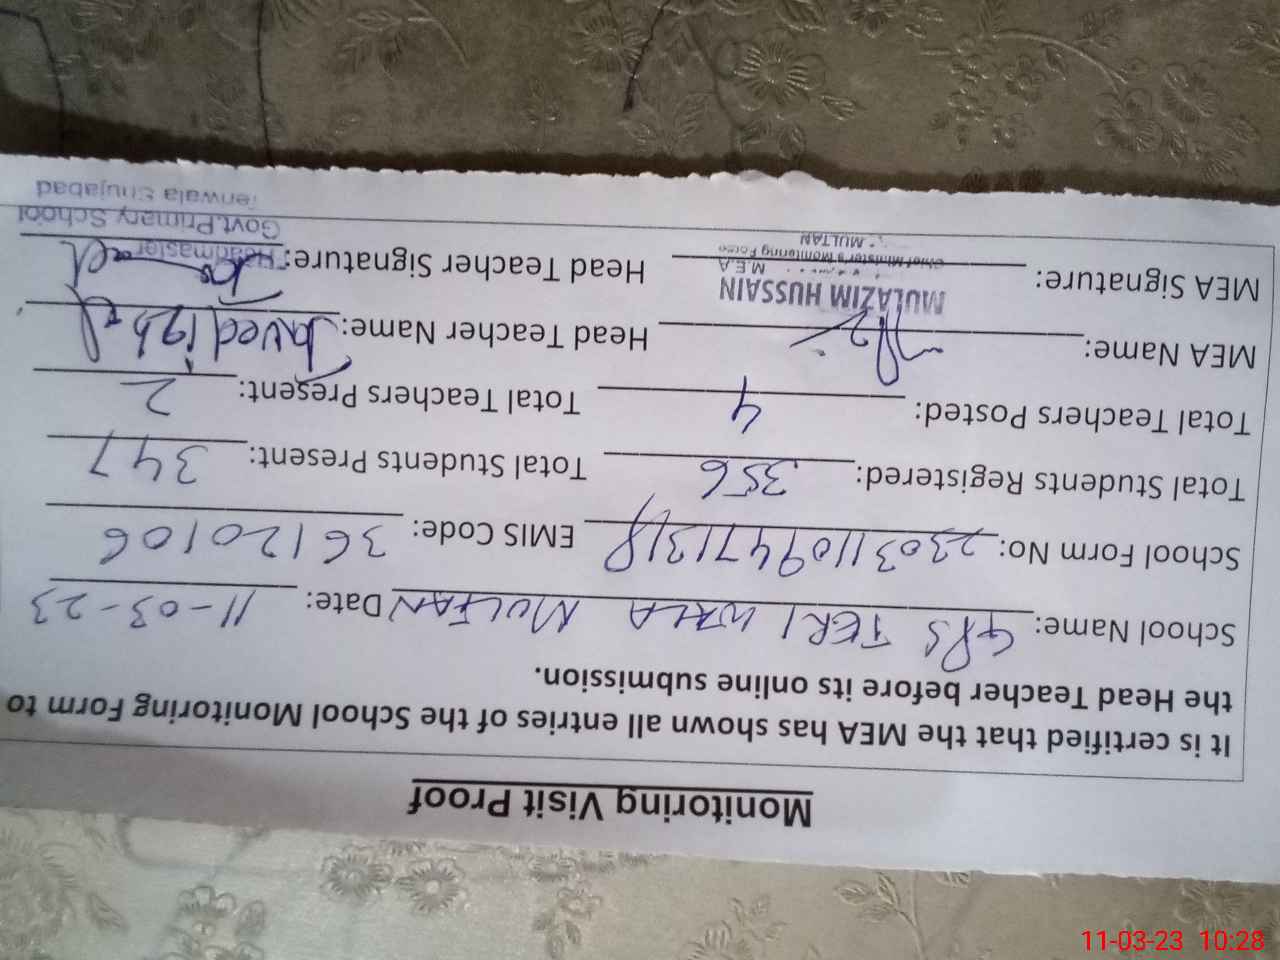 Monitoring Visit Proof
It is certified that the MEA has shown all entries of the School Monitoring Form to
the Head Teacher before its online submission.
School Name: GPS TERI WALA MULTAN Date: 11-03-23
School Form No: 23031109471318 EMIS Code: 36120106
Total Students Registered: 356 Total Students Present: 347
Total Teachers Posted: 4 Total Teachers Present: 2
MEA Name: Head Teacher Name: Javed Iqbal
MULAZIM HUSSAIN
M.E.A
MEA Signature: Head Teacher Signature:
Chief Minister's Monitoring Force
MULTAN
Headmaster
Govt.Primary School
Shujabad
11-03-23 10:28